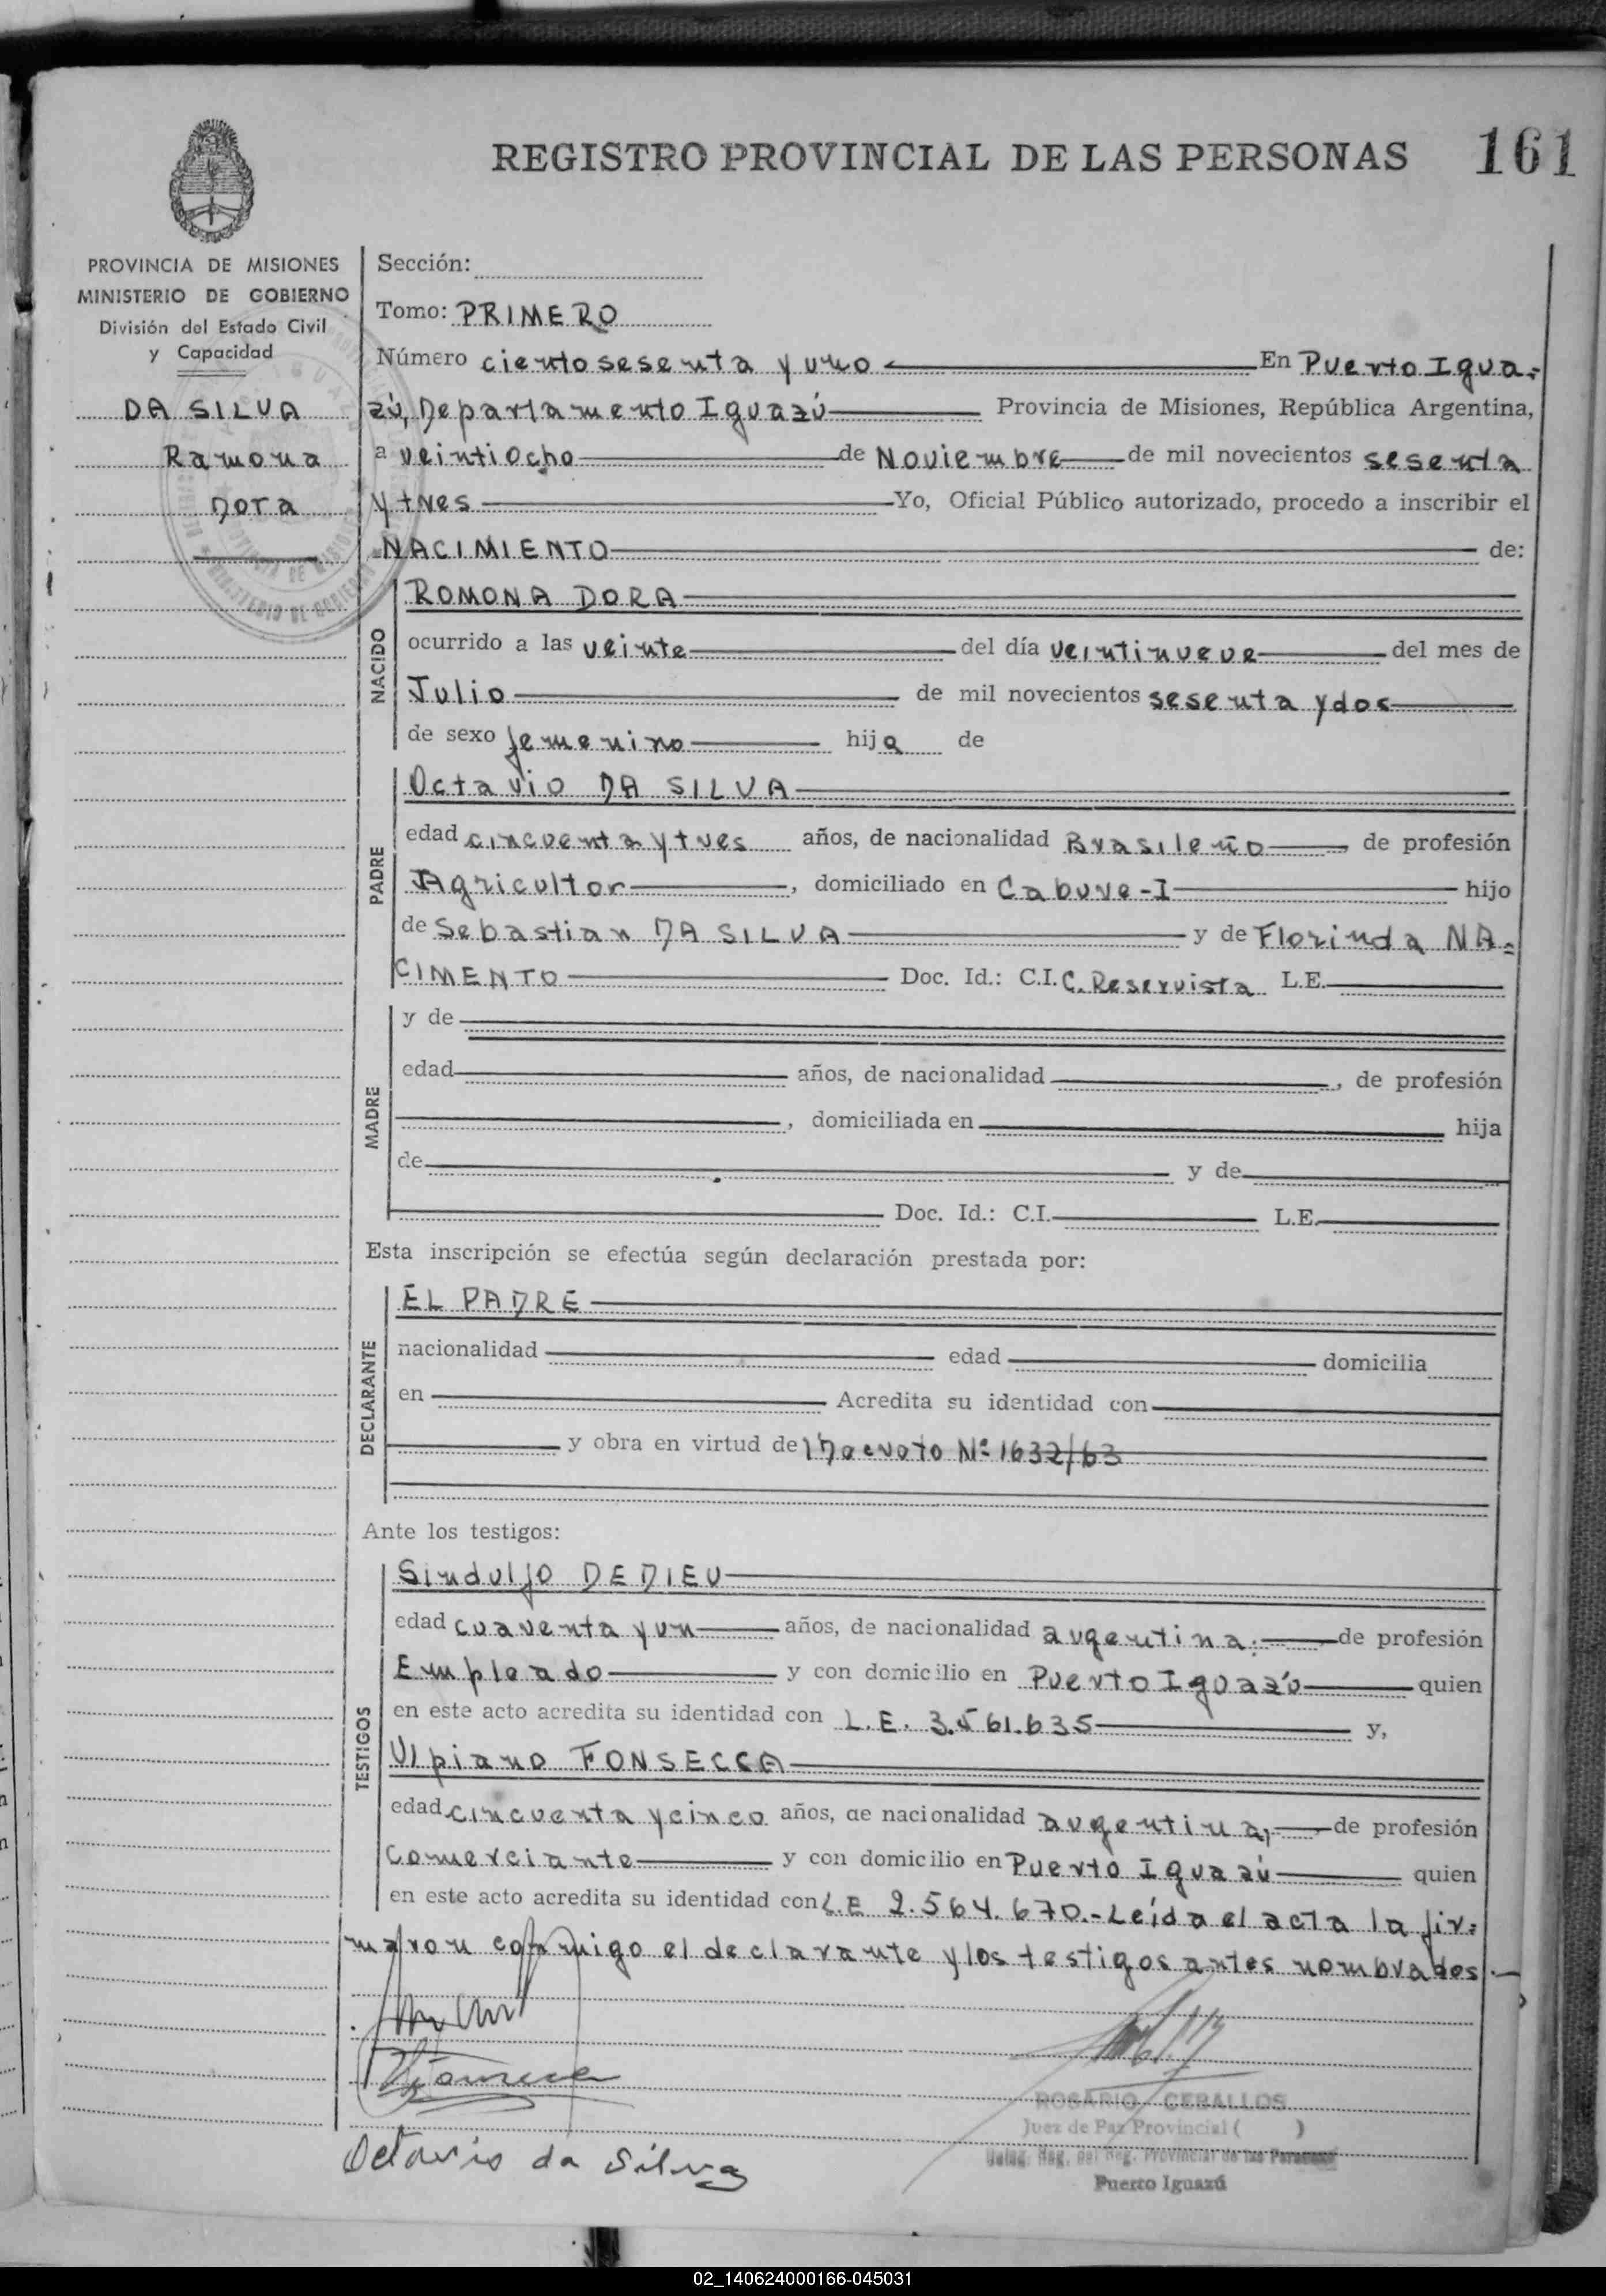 REGISTRO PROVINCIAL DE LAS PERSONAS 161
PROVINCIA DE MISIONES
MINISTERIO DE GOBIERNO
División del Estado Civil
y Capacidad
DA SILVA
Ramona
Dora
Sección:
Tomo: PRIMERO
Número ciento sesenta y uno En Puerto Igua-
zú, Departamento Iguazú Provincia de Misiones, República Argentina,
a veintiocho de Noviembre de mil novecientos sesenta
y tres Yo, Oficial Público autorizado, procedo a inscribir el
NACIMIENTO de:
NACIDO
ROMONA DORA
ocurrido a las veinte del día veintinueve del mes de
Julio de mil novecientos sesenta y dos
de sexo femenino hija de
PADRE
Octavio DA SILVA
edad cincuenta y tres años, de nacionalidad Brasileño de profesión
Agricultor, domiciliado en Cabure-I hijo
de Sebastian DA SILVA y de Florinda NA-
CIMENTO Doc. Id.: C.I. C. Reservista L.E.
MADRE
y de
edad años, de nacionalidad , de profesión
, domiciliada en hija
de y de
Doc. Id.: C.I. L.E.
Esta inscripción se efectúa según declaración prestada por:
DECLARANTE
EL PADRE
nacionalidad edad domicilia
en Acredita su identidad con
y obra en virtud de Decreto Nº 1632/63
Ante los testigos:
TESTIGOS
Sindulfo DEDIEU
edad cuarenta y un años, de nacionalidad argentina. de profesión
Empleado y con domicilio en Puerto Iguazú quien
en este acto acredita su identidad con L.E. 3.561.635 y,
Ulpiano FONSECCA
edad cincuenta y cinco años, de nacionalidad argentina, de profesión
Comerciante y con domicilio en Puerto Iguazú quien
en este acto acredita su identidad con L.E 2.564.670.- Leída el acta la fir-
maron conmigo el declarante y los testigos antes nombrados.-
ROSARIO CEBALLOS
Juez de Paz Provincial ( )
Puerto Iguazú
Octavio da Silva
02_140624000166-045031